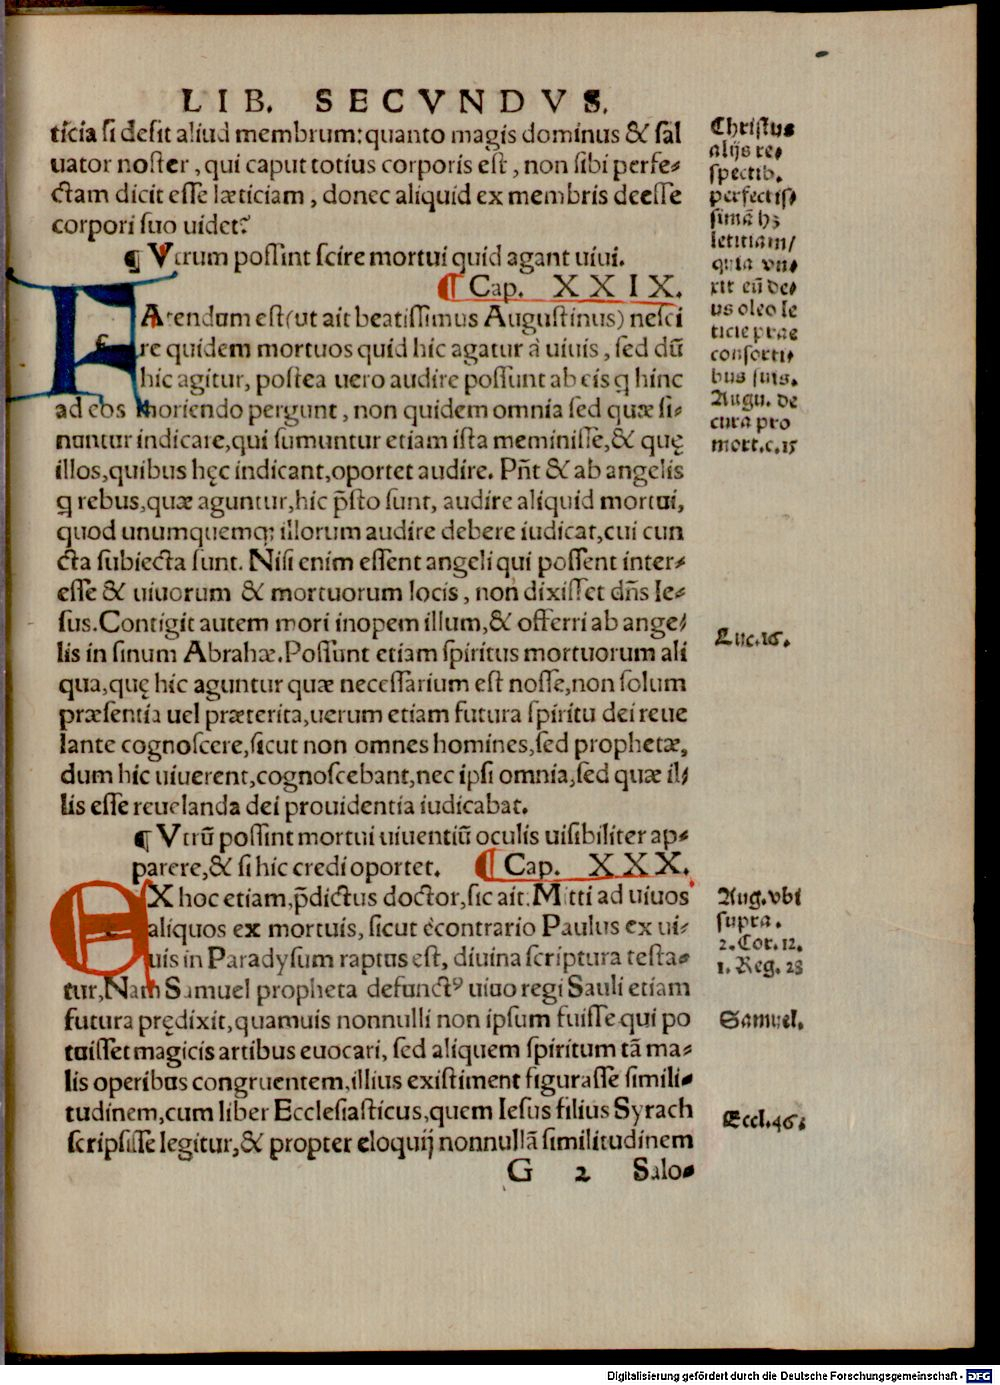 LIB. SECVNDVS.
ticia si desit aliud membrum: quanto magis dominus & sal
uator noster, qui caput totius corporis est, non sibi perfe-
ctam dicit esse læticiam, donec aliquid ex membris deesse
corpori suo uidet?
¶ Vtrum possint scire mortui quid agant uiui.
¶ Cap. XXIX.
FAtendum est (ut ait beatissimus Augustinus) nesci
re quidem mortuos quid hic agatur a uiuis, sed dū
hic agitur, postea uero audire possunt ab eis q hinc
ad eos moriendo pergunt, non quidem omnia sed quæ si-
nuntur indicare, qui sumuntur etiam ista meminisse, & quę
illos, quibus hęc indicant, oportet audire. Pñt & ab angelis
q rebus, quæ aguntur, hic p̄sto sunt, audire aliquid mortui,
quod unumquemq; illorum audire debere iudicat, cui cun
cta subiecta sunt. Nisi enim essent angeli qui possent inter-
esse & uiuorum & mortuorum locis, non dixisset dn̄s Ie-
sus. Contigit autem mori inopem illum, & offerri ab ange-
lis in sinum Abrahæ. Possunt etiam spiritus mortuorum ali
qua, quę hic aguntur quæ necessarium est nosse, non solum
præsentia uel præterita, uerum etiam futura spiritu dei reue
lante cognoscere, sicut non omnes homines, sed prophetæ,
dum hic uiuerent, cognoscebant, nec ipsi omnia, sed quæ il-
lis esse reuelanda dei prouidentia iudicabat.
¶ Vtrū possint mortui uiuentiū oculis uisibiliter ap-
parere, & si hic credi oportet. ¶ Cap. XXX.
EX hoc etiam, p̄dictus doctor, sic ait. Mitti ad uiuos
aliquos ex mortuis, sicut econtrario Paulus ex ui-
uis in Paradysum raptus est, diuina scriptura testa-
tur, Nam Samuel propheta defunctꝰ uiuo regi Sauli etiam
futura prędixit, quamuis nonnulli non ipsum fuisse qui po
tuisset magicis artibus euocari, sed aliquem spiritum tā ma-
lis operibus congruentem, illius existiment figurasse simili-
tudinem, cum liber Ecclesiasticus, quem Iesus filius Syrach
scripsisse legitur, & propter eloquij nonnullā similitudinem
G 2 Salo-
Christus
alijs re-
spectib.
perfectis-
simā hꝫ
letitiam/
quia vn-
xit eū de-
us oleo le
ticie prae
consorti-
bus suis.
Augu. de
cura pro
mort.c.15
Luc.16.
Aug. vbi
supra.
2. Cor. 12.
1. Reg. 28
Samuel.
Eccl. 46.
Digitalisierung gefördert durch die Deutsche Forschungsgemeinschaft - DFG